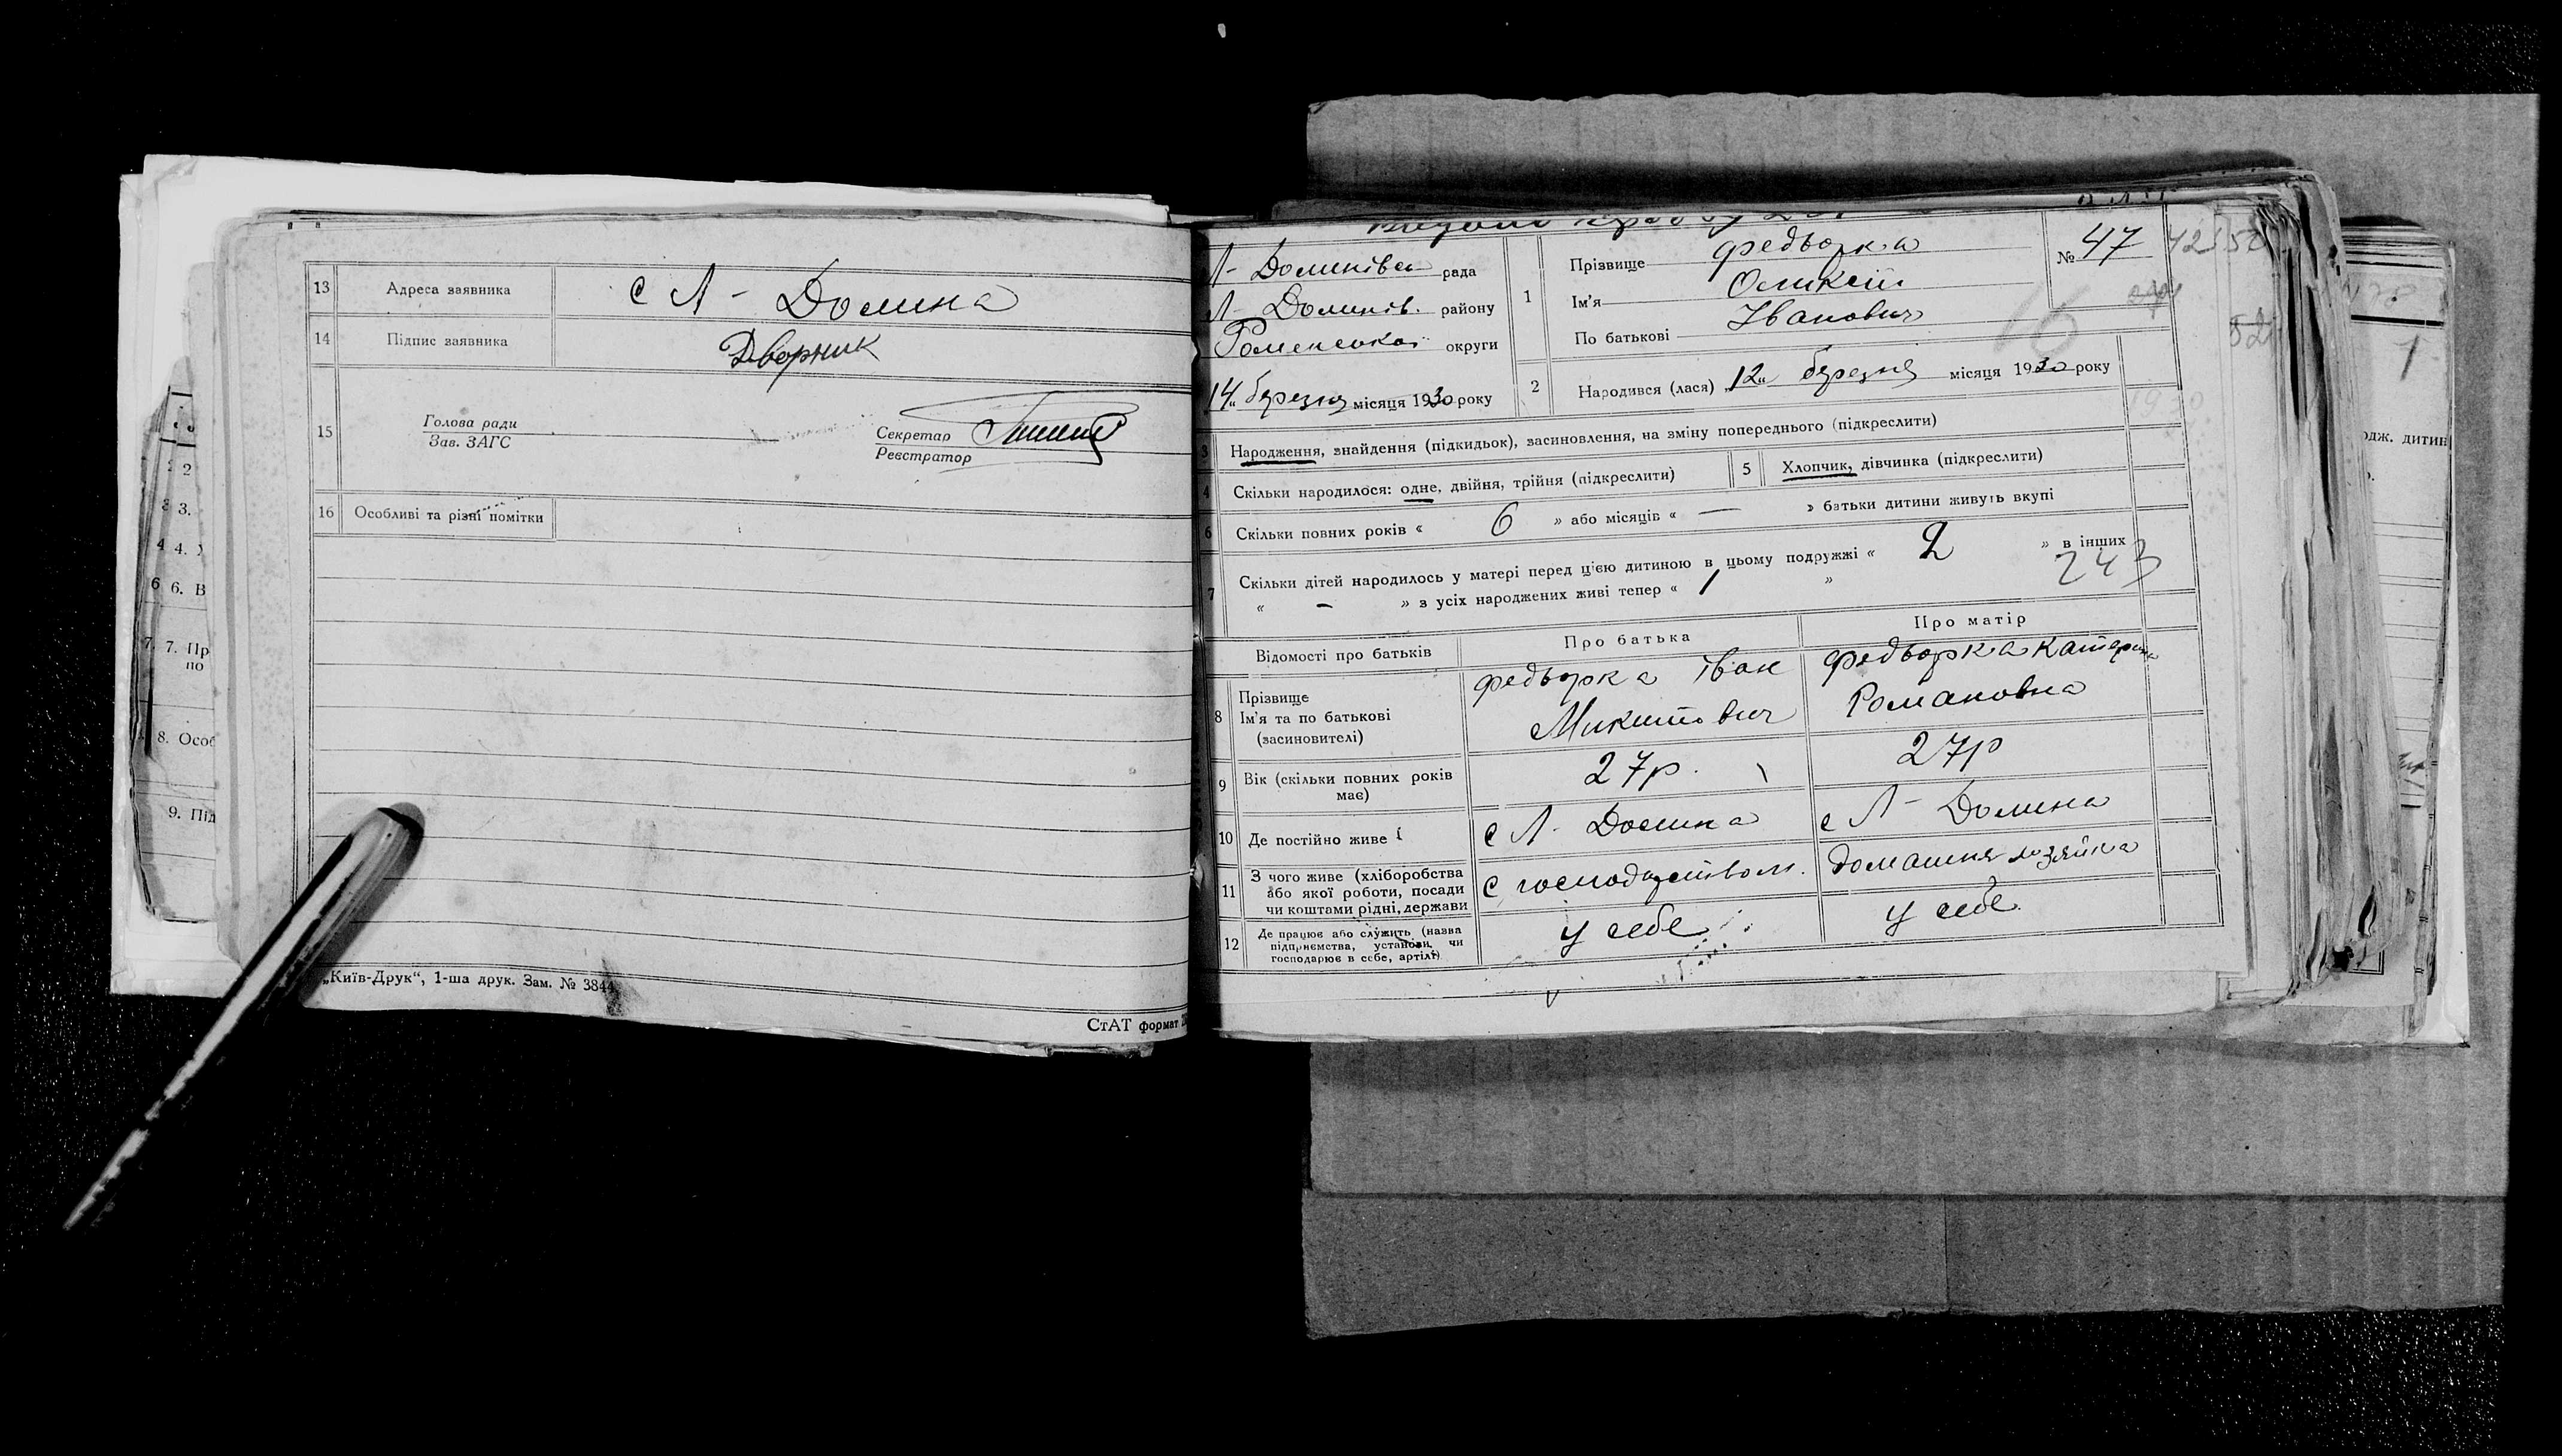 13 Адреса заявника с Л - Долина
14 Підпис заявника Дворник
15 Голова ради
Зав. ЗАГС
Секретар
Реєстратор
16 Особливі та різні помітки
„Київ-Друк“, 1-ша друк. Зам. № 3844
СтАТ формат
Л - Долинівсь рада
Л - Долинів. району
Роменської округи
14 „ березня місяця 1930 року
1 Прізвище Федьорка
Ім’я Оликсій
По батькові Іванович
№ 47
2 Народився (лася) 12 „ березня місяця 1930 року
3 Народження, знайдення (підкидьок), засиновлення, на зміну попереднього (підкреслити)
4 Скільки народилося: одне, двійня, трійня (підкреслити)
5 Хлопчик, дівчинка (підкреслити)
6 Скільки повних років « 6 » або місяців « — » батьки дитини живуть вкупі
7 Скільки дітей народилось у матері перед цією дитиною в цьому подружжі « 2 » в інших
« - » з усіх народжених живі тепер « 1 »
243
Відомості про батьків Про батька Про матір
8 Прізвище
Ім’я та по батькові
(засиновителі)
Федьорка Іван
Микитович
Федьорка Катерина
Романовна
9 Вік (скільки повних років
має)
27р.
27р
10 Де постійно живе
с Л - Долина
с Л - Долина
11 З чого живе (хліборобства
або якої роботи, посади
чи коштами рідні, держави
С господарством.
домашня хозяйка
12 Де працює або служить (назва
підприємства, установи, чи
господарює в себе, артілі)
у себе
у себе.
2
3.
4.
6. В
7. Пр
по
8. Особ
9. Під
одж. дитин